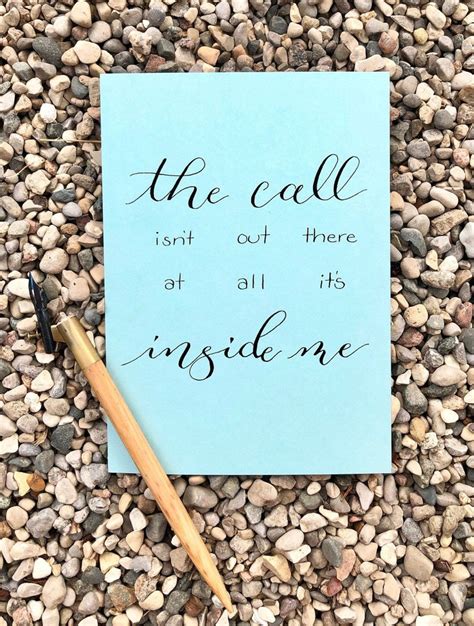 the call
isn't out there
at all it's
inside me